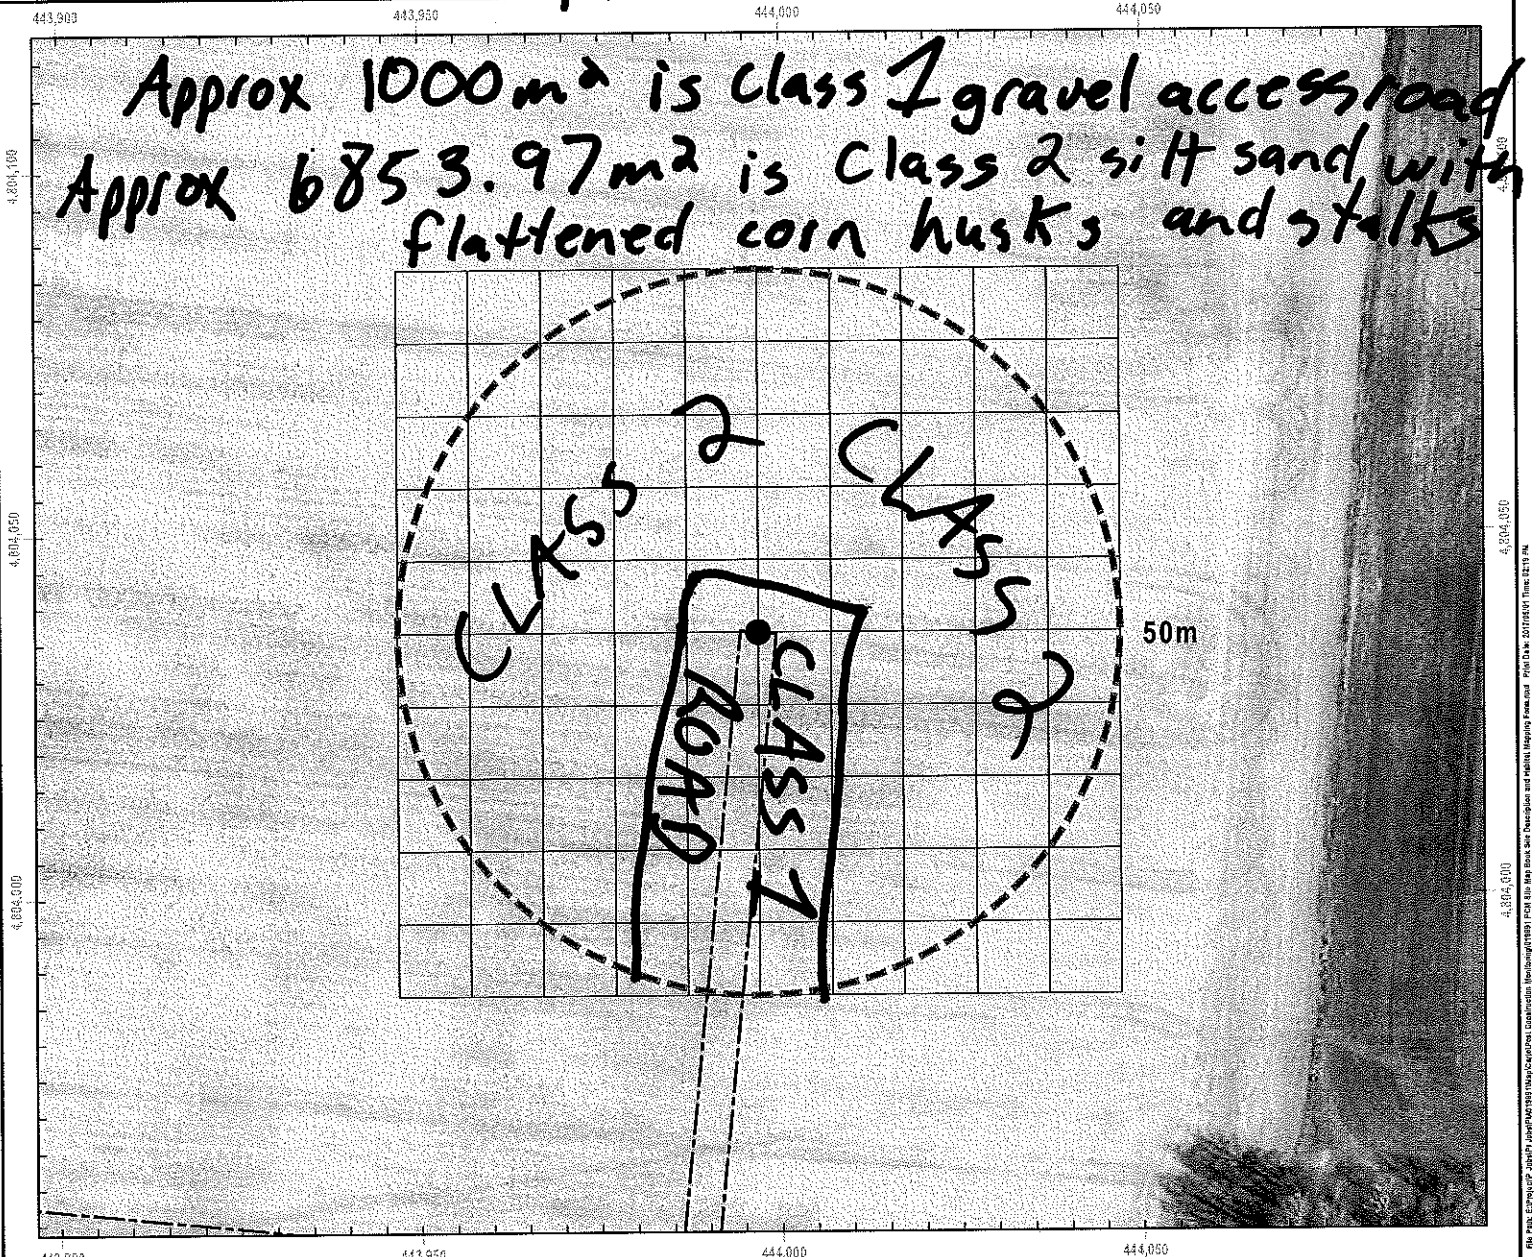 443,900 443,950 444,000 444,050
Approx 1000m² is Class 1 gravel access road
Approx 6853.97m² is Class 2 silt sand with
flattened corn husks and stalks
4,804,100
CLASS 2
CLASS 2
4,804,050 4,804,050
50m
CLASS 1
ROAD
4,804,000 4,804,000
443,950 444,000 444,050